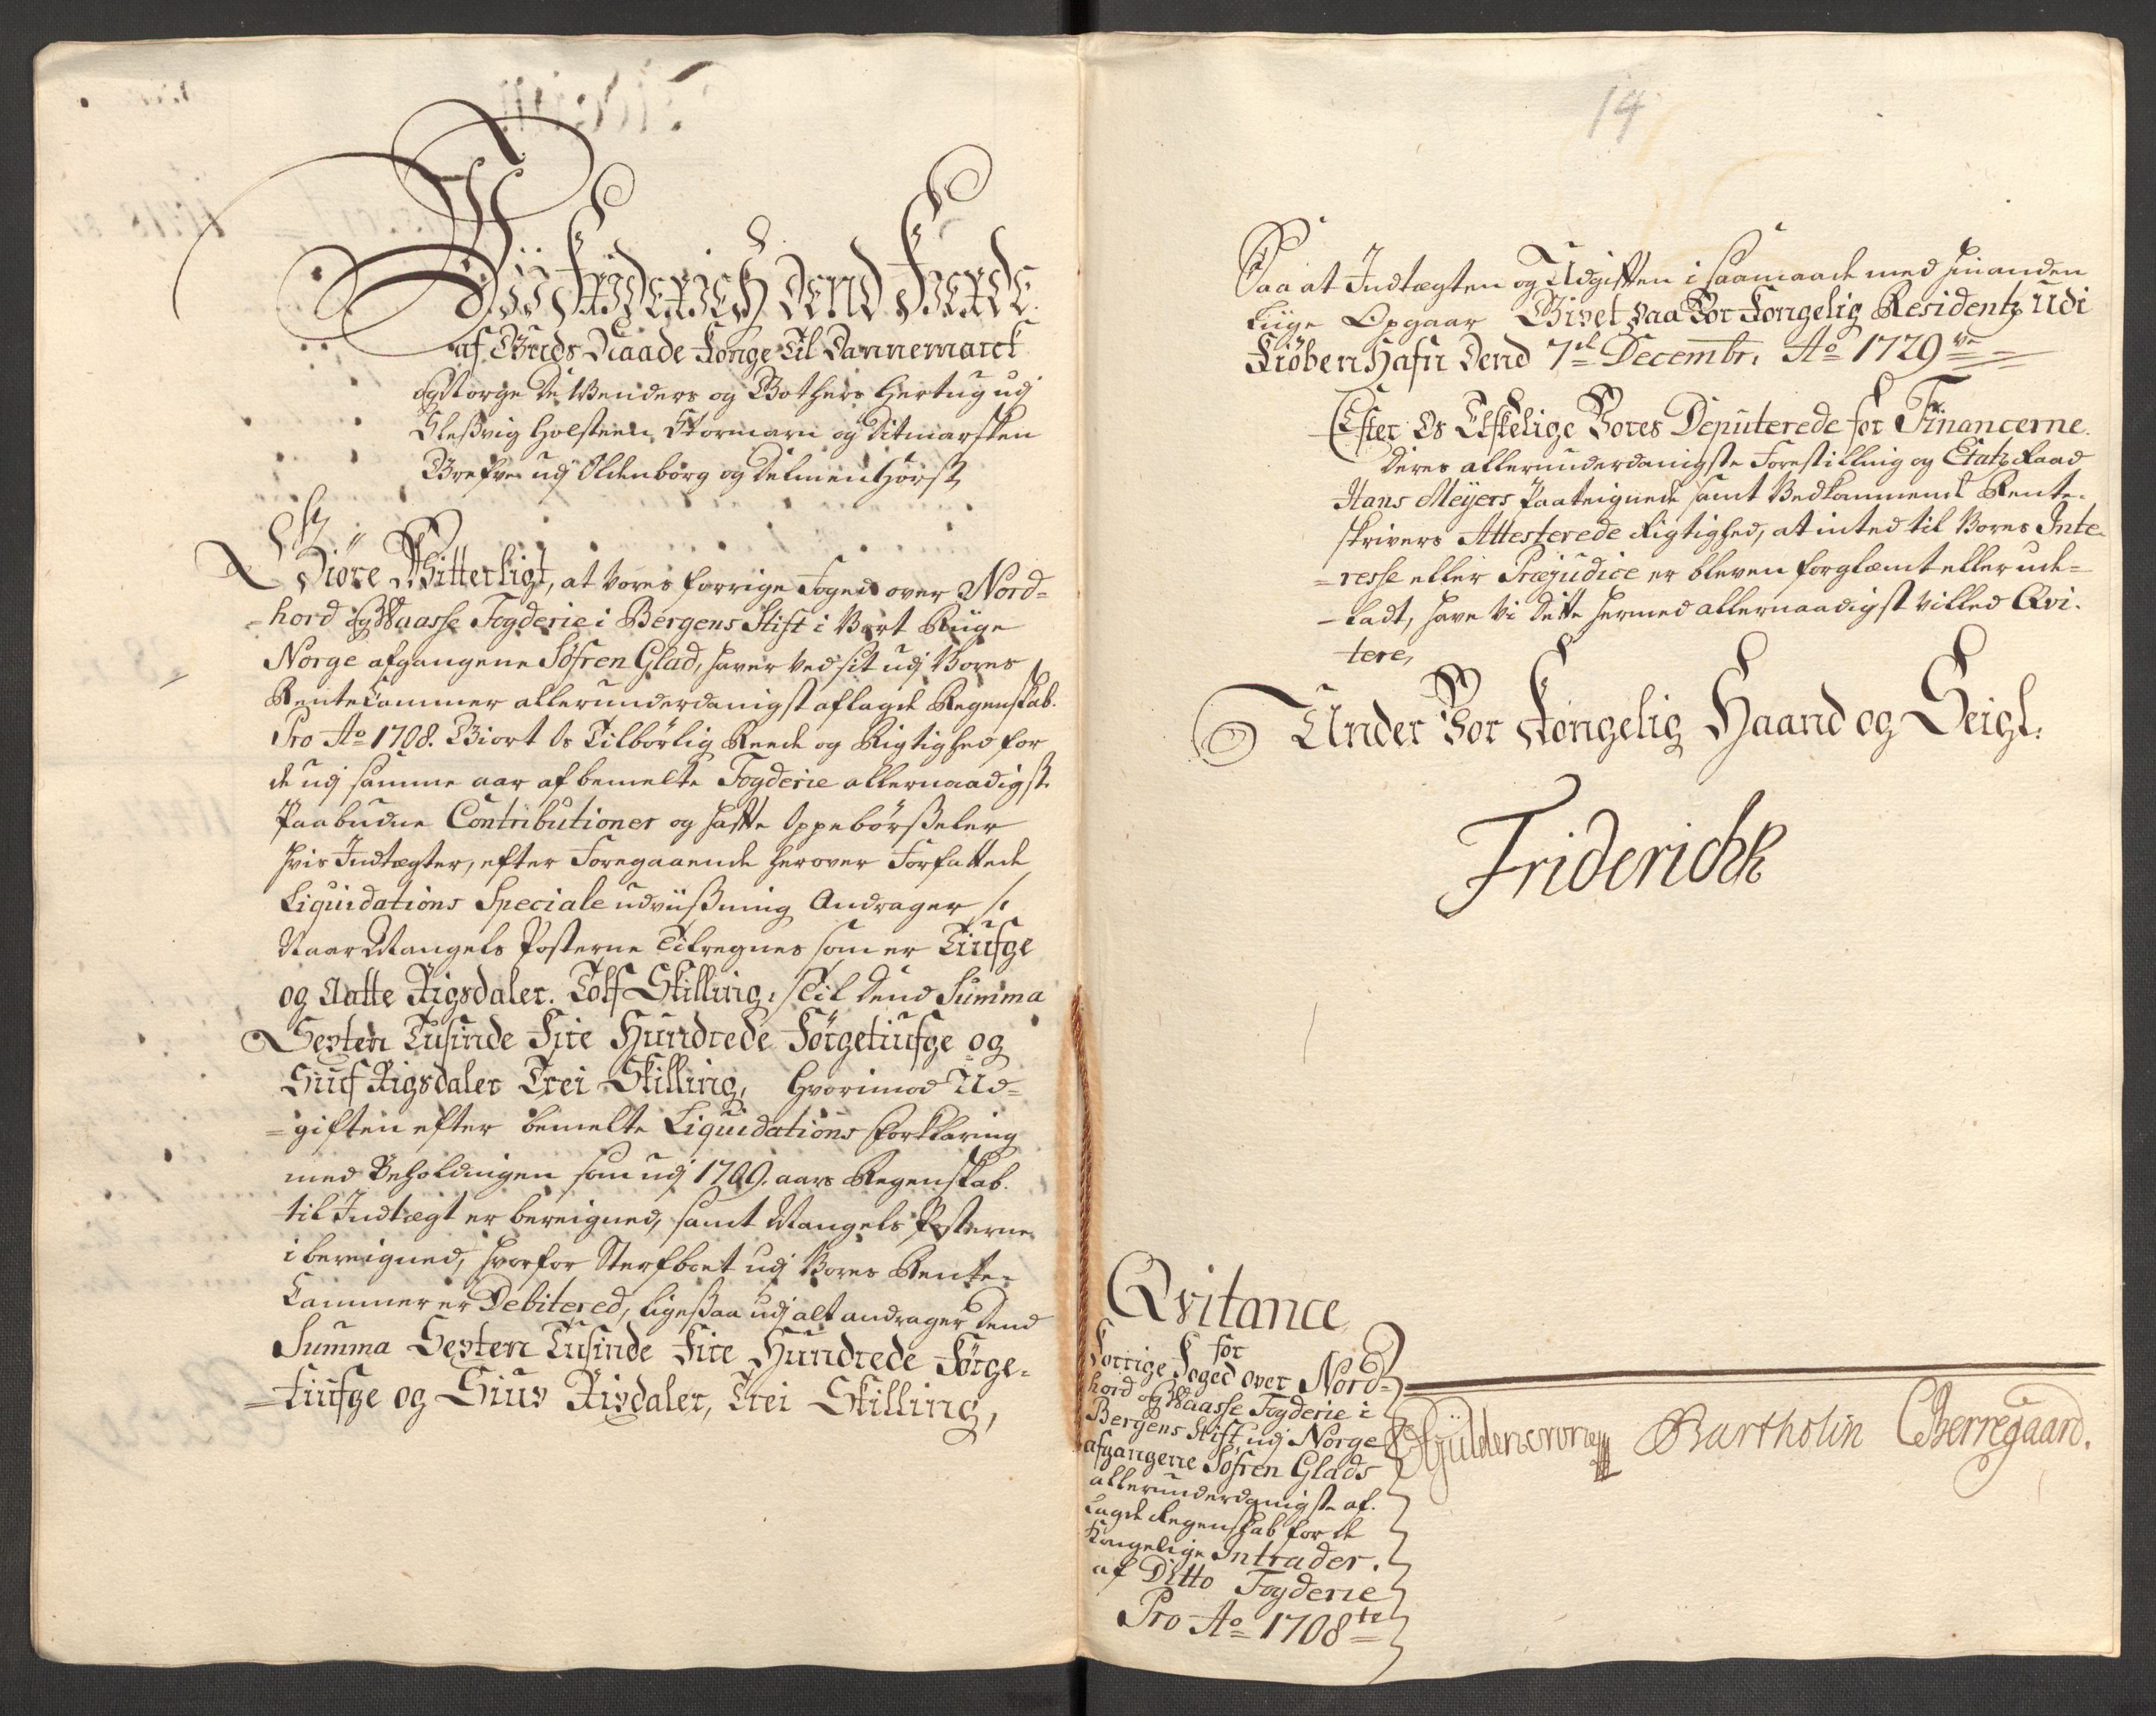 Wii Friderich Dend Fierde
af Guds Naade Konge Til Dannemarck
og Norge De Wenders og Gothers Hertug udj
Slesvig Holsteen, Stormarn og Ditmarsken
Grefve udj Oldenborg og Delmenhorst
Giöre Witterligt, at vores forrige Foged over Nord=
=hord og Waasse Fogderie i Bergens Stift i Vort Riige
Norge afgangene Søfren Glad, haver ved sit udj Vores
RenteCammer allerunderdanigst aflagde Regenskab.
Pro Ao 1708. Giort Os Tilbörlig Reede og Rigtighed for
de udj samme aar af bemelte Fogderie allernaadigst
Paabudne Contributioner og hafte Oppebörsseler
hvis Indtægter, efter Foregaaende herover Forfattede
Liquidations Speciale udviissning Andrager /:
Naar Mangels Posterne Tilregnes som er Tiufge
og Aatte Rigsdaler. Tolf Skilling :/ Til dend Summa
Sexten Tusinde Fire Hundrede Förgetiufge og
Siuf Rigsdaler Trei Skilling, Hvorimod Ud=
=giften efter bemelte Liquidations Forklaring
med Beholdningen som udj 1709. aars Regenskab.
til Indtægt er bereigned, samt Mangels Posterne
i bereigned, hvorfor Sterfboet udj Vores Rente=
Cammer er Debitered, ligessaa udj alt andrager dend
Summa Sexten Tusinde Fire Hundrede Förge=
=tiufge og Siuv Rixdaler, Trei Skilling,
14
Saa at Indtægten og Udgiften i saamaade med hinanden
liige Opgaar Givet paa Vor Kongelig Residentz udi
Kiöbenhafn Dend 7de Decembr. Ao 1729
Efter Os Elskelige Vores Deputerede for Financerne
deres allerunderdanigste Forestilling og Etatz Raad
Hans Meÿers Paateignede samt Vedkommende Rente=
skrivers Attesterede Rigtighed, at inted til Vores Inte=
=resse eller Præjudice er bleven forglemt eller ude=
=ladt, have Vi dette hermed allernaadigst villed Qvi=
tere,
Under Vor Kongelig Haand og Seigl:
Friderich R
Qvitance
for
Forrige Foged over Nord=
hord og Waasse Fogderie i
Bergens Stift udj Norge
afgangene Søfren Glads
allerunderdanigste af=
lagde Regenskab for de
Kongelige Intrader.
af Ditto Fogderie
Pro Ao 1708te
Güldencrone Bartholin CBerregaard.